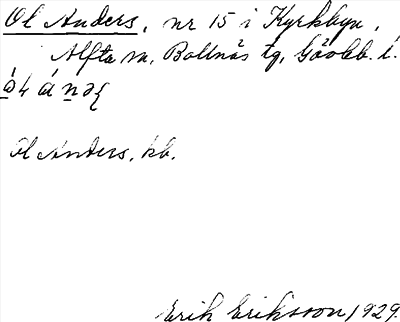 Ol Anders, nr 15 i Kyrkbyn,
Alfta sn, Bollnäs tg, Gävlb. l.
Ol Anders, kb.
Erik Eriksson 1929.